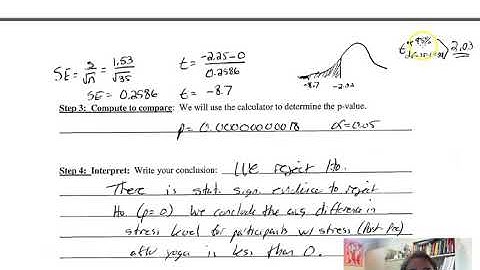 SE = 2/√n = 1.53/√35
t = -2.25-0/0.2586
95%
2.03
SE = 0.2586
t = -8.7
-8.7 -2.03
Step 3: Compute to compare: We will use the calculator to determine the p-value.
α=0.05
Step 4: Interpret: Write your conclusion: We reject Ho.
There is stat. sign. evidence to reject
Ho. (p=0) We conclude the avg difference in
stress level for participants w/ stress (Post-Pre)
after yoga is less than 0.